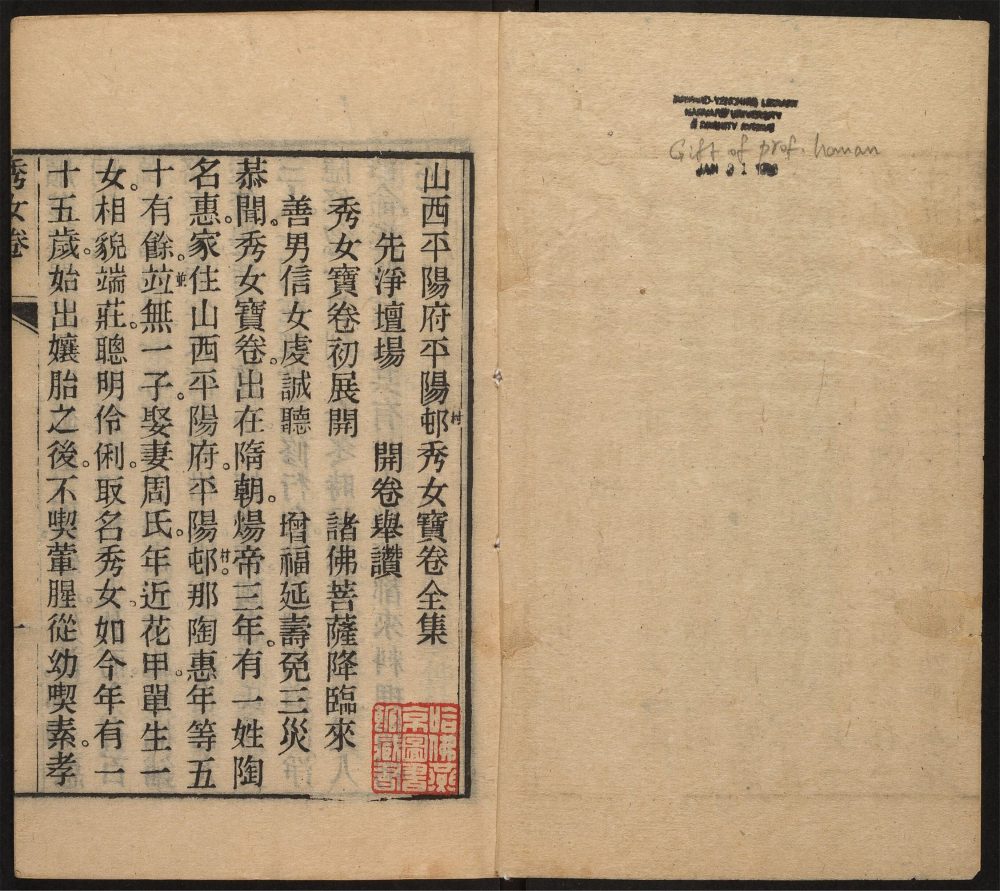 HARVARD-YENCHING LIBRARY
HARVARD UNIVERSITY
2 DIVINITY AVENUE
Gift of prof. hanan
JAN 31
山西平陽府平陽邨村秀女寶卷全集
先淨壇場　開卷舉讚
秀女寶卷初展開　諸佛菩薩降臨來
善男信女虔誠聽　增福延壽免三災
恭聞。秀女寶卷。出在隋朝。煬帝三年。有一姓陶
名惠。家住山西平陽府。平陽邨村。那陶惠年等五
十有餘。竝並無一子。娶妻周氏。年近花甲。單生一
女。相貌端莊。聰明伶俐。取名秀女。如今年有一
十五歲。始出孃胎之後。不喫葷腥。從幼喫素。孝
秀女卷
一
哈佛燕
京圖書
館藏書